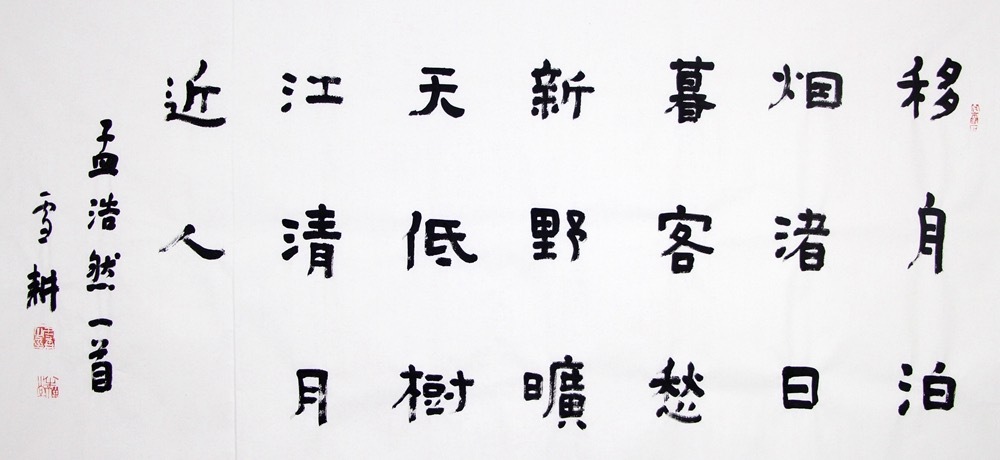 移舟泊
烟渚日
暮客愁
新野曠
天低樹
江清月
近人
孟浩然一首
雪耕